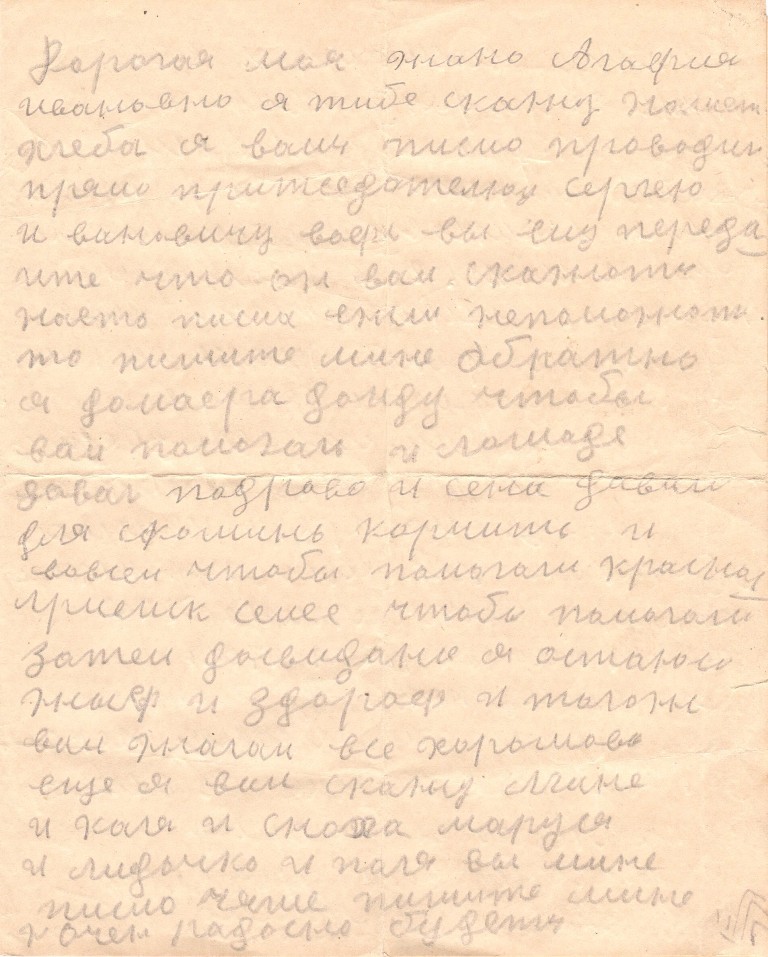 Дорогая моя жано Агафия
ивановно я тибе скажу
хлеба я вам писмо проводил
прямо притседателю сергею
и вановичу вы ему переда
ите что он вам скажоть
насто писма ежли непоможоть
то пишите мине обратно
я домаера дойду чтобы
вам помогали и лошаде
давал подрово и сена давал
для скотинь кормить и
вовсем чтобы помогали красна
армейск семее чтобы помогали
затем досвидано я остаюс
жыф и здороф и тогоже
вам жалаи все хорошово
еще я вам скажу мине
и каля и сноха маруся
и лидочко и паля вы мине
писмо чяще пишите мине
очен радосно будеть